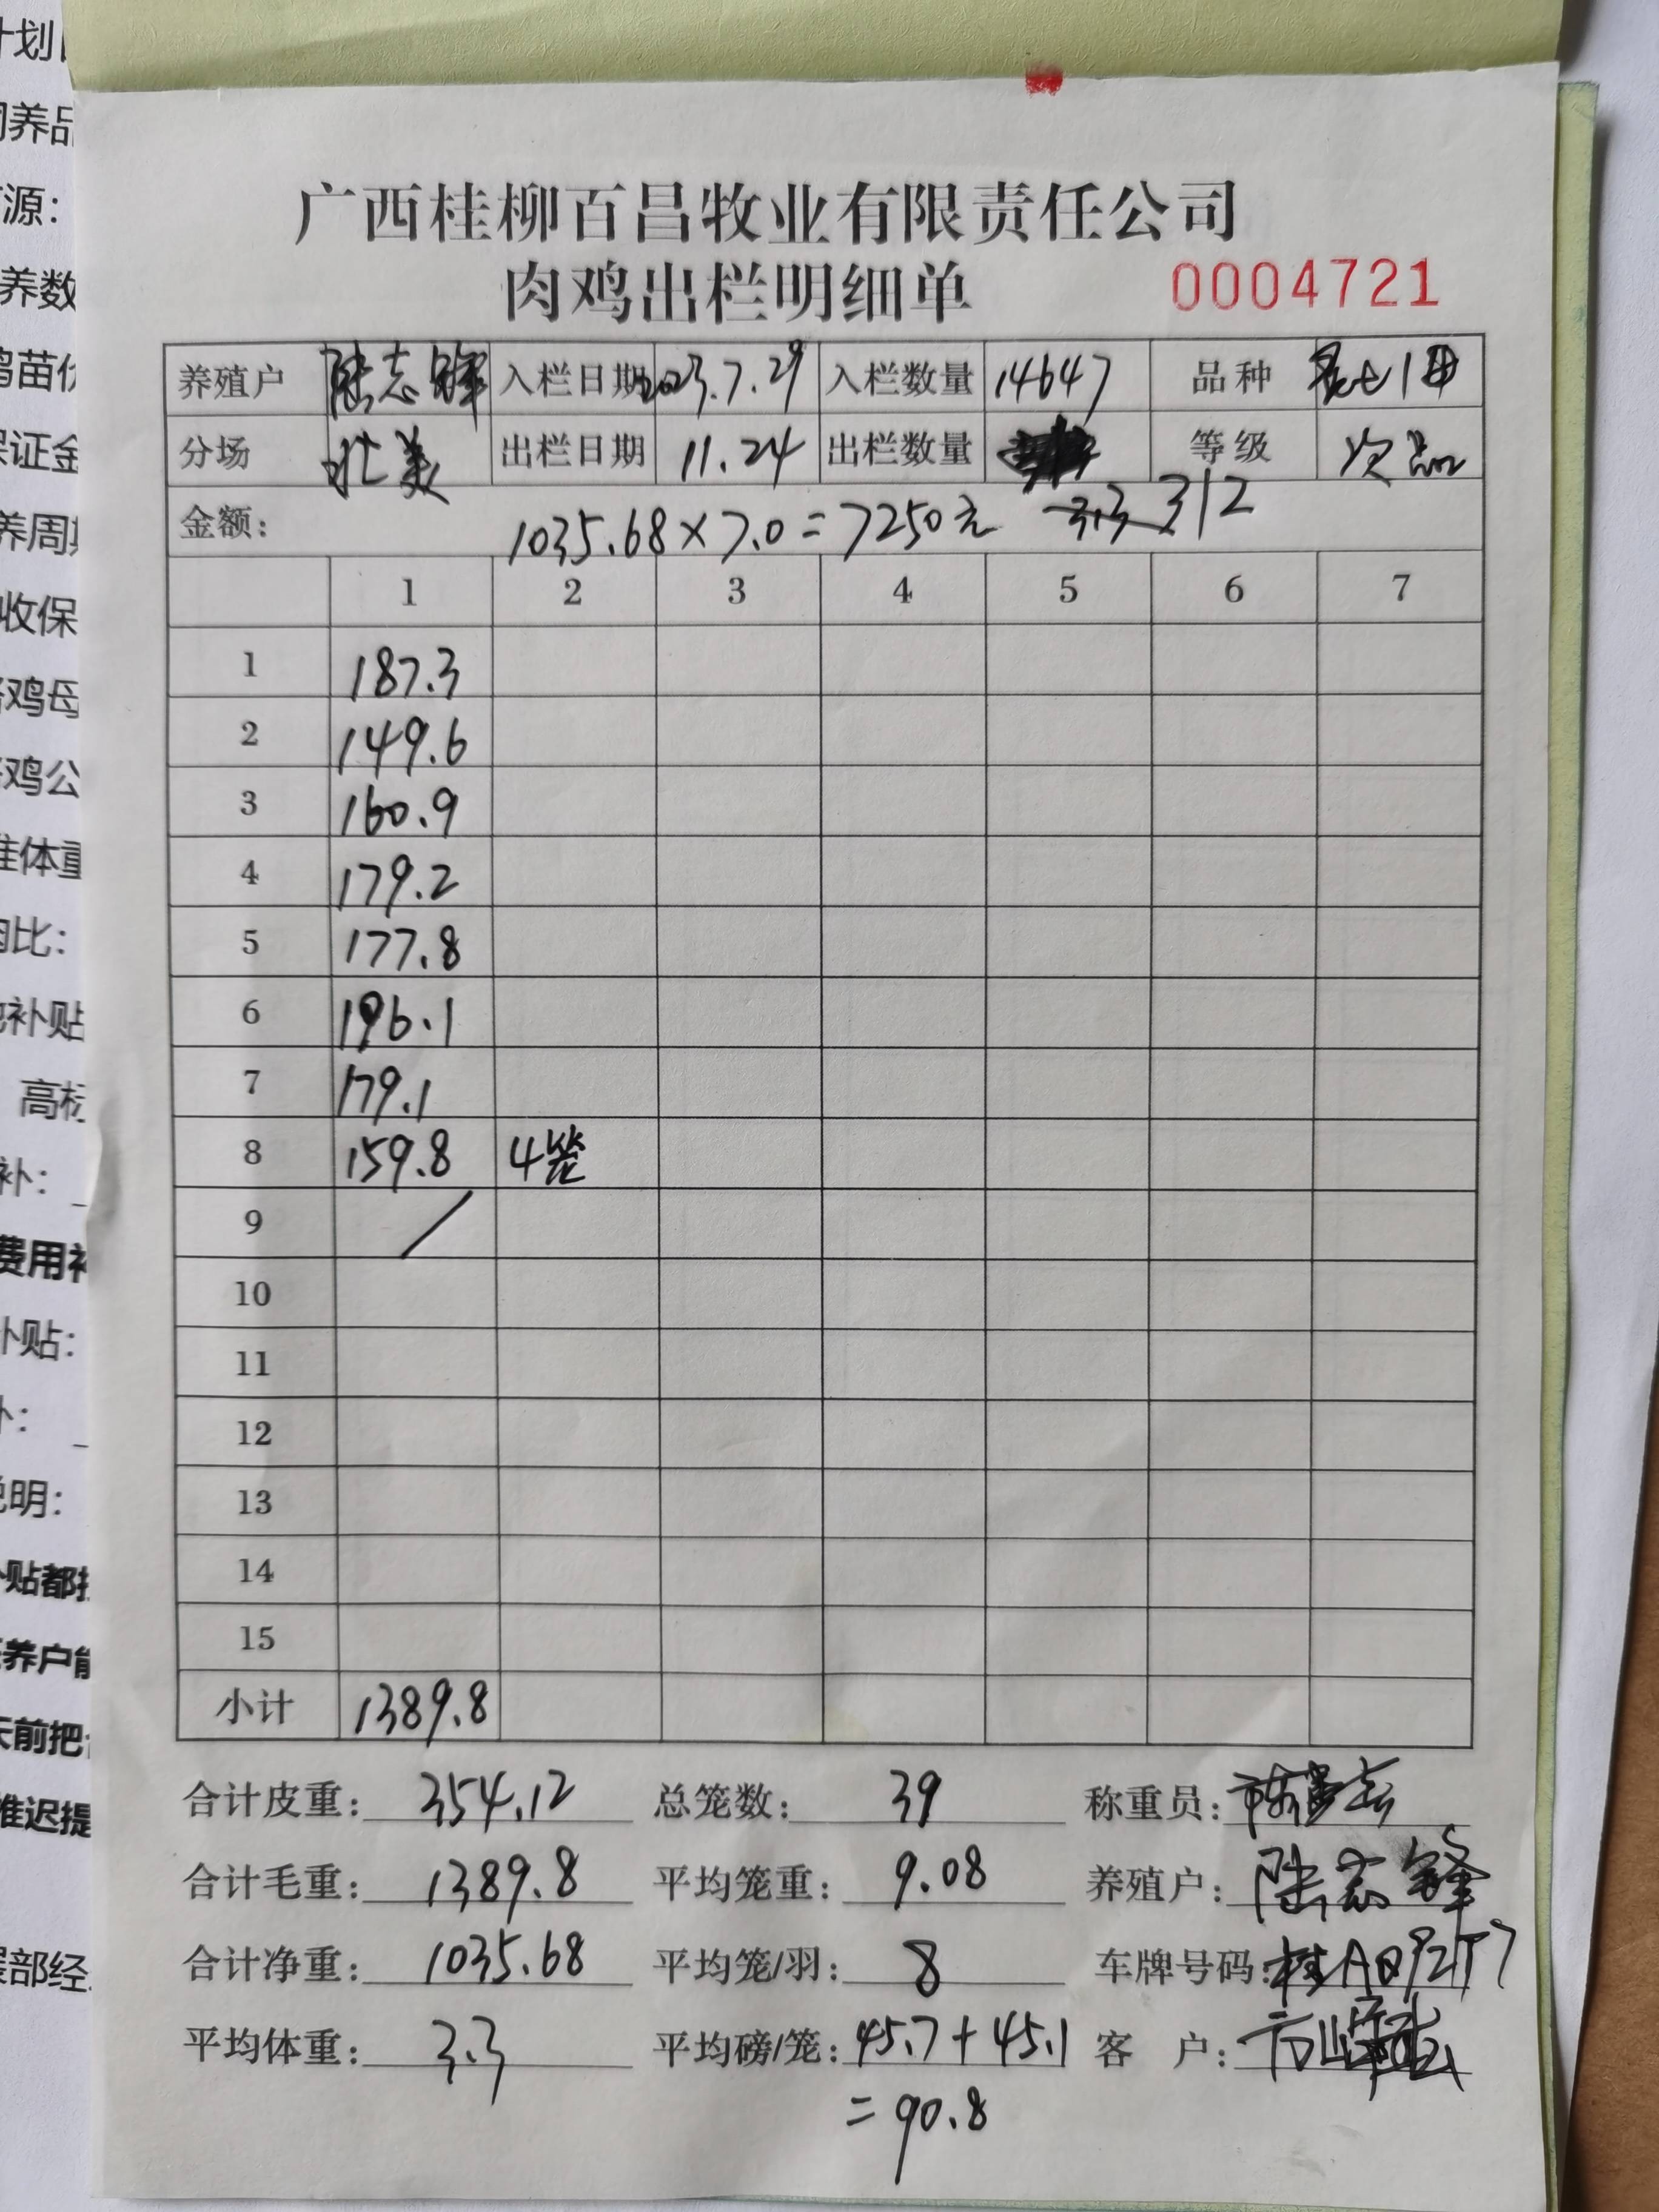 广西桂柳百昌牧业有限责任公司
肉鸡出栏明细单 0004721
养殖户 陆志锋 入栏日期 2023.7.29 入栏数量 14647 品种
分场 北美 出栏日期 11.24 出栏数量 等级 次品
金额: 1035.68×7.0=7250元 312
1 2 3 4 5 6 7
1 187.3
2 149.6
3 160.9
4 179.2
5 177.8
6 196.1
7 179.1
8 159.8 4笼
9 /
10
11
12
13
14
15
小计 1389.8
合计皮重: 354.12 总笼数: 39 称重员:
合计毛重: 1389.8 平均笼重: 9.08 养殖户: 陆志锋
合计净重: 1035.68 平均笼/羽: 8 车牌号码:
平均体重: 3.3 平均磅/笼: 45.7+45.1 客 户:
=90.8
计划
养品
源:
养数
鸡苗
保证金
养周
收保
鸡母
鸡公
准体重
肉比:
补贴
高标
补:
费用补
补贴:
说明:
补贴都
养户
天前把
推迟提
部经